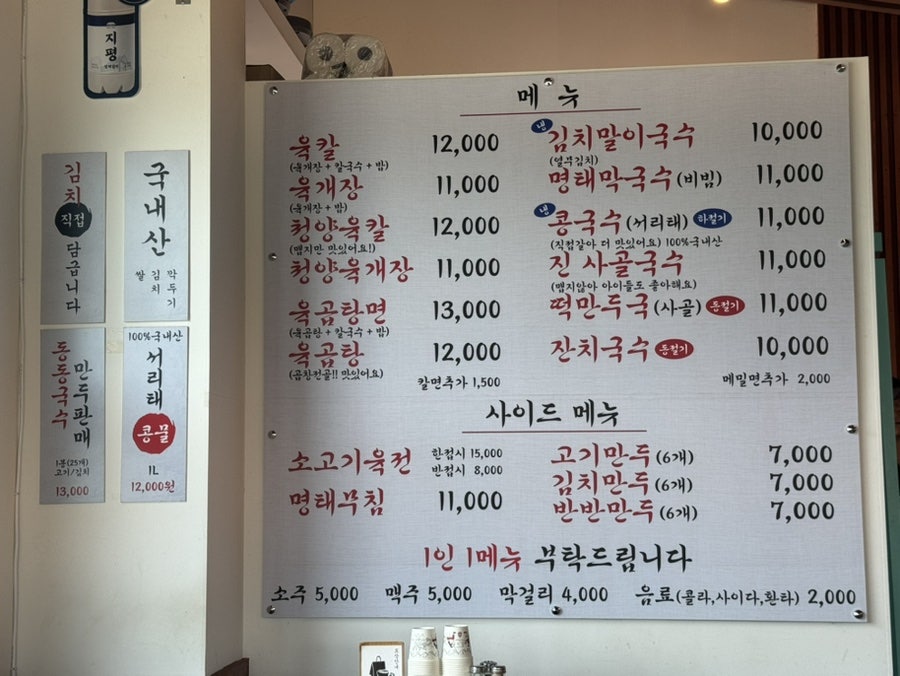 지평
김치
직접
담급니다
국내산
쌀 김치 깍두기
동동국수
만두판매
1봉(25개)
고기/김치
13,000
100%국내산
서리태
콩물
1L
12,000원
메뉴
육칼 12,000
(육개장 + 칼국수 + 밥)
육개장 11,000
(육개장 + 밥)
청양육칼 12,000
(맵지만 맛있어요!)
청양육개장 11,000
육곰탕면 13,000
(육곰탕 + 칼국수 + 밥)
육곰탕 12,000
(곱창전골!! 맛있어요)
칼면추가 1,500
냉 김치말이국수 10,000
(열무김치)
명태막국수(비빔) 11,000
냉 콩국수(서리태) 하절기 11,000
(직접갈아 더 맛있어요) 100%국내산
진 사골국수 11,000
(맵지않아 아이들도 좋아해요)
떡만두국(사골) 동절기 11,000
잔치국수 동절기 10,000
메밀면추가 2,000
사이드 메뉴
소고기육전 한접시 15,000
반접시 8,000
명태무침 11,000
고기만두(6개) 7,000
김치만두(6개) 7,000
반반만두(6개) 7,000
1인 1메뉴 부탁드립니다
소주 5,000 맥주 5,000 막걸리 4,000 음료(콜라,사이다,환타) 2,000